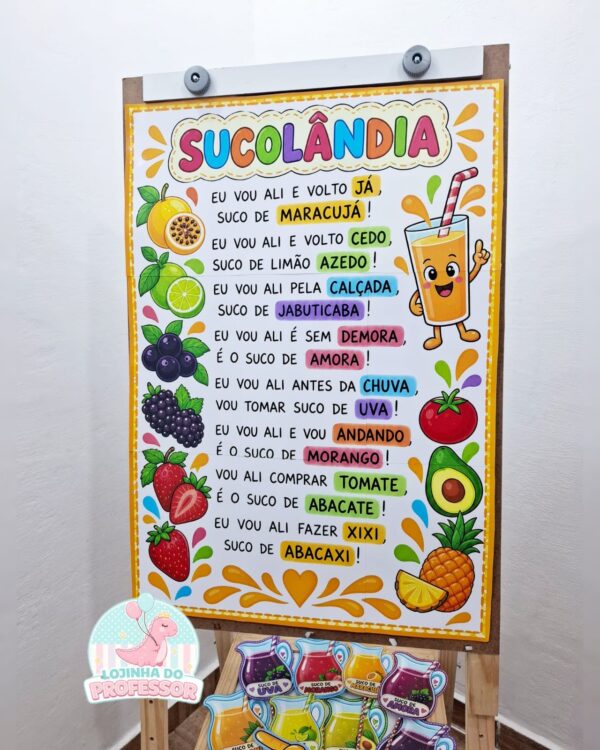 SUCOLÂNDIA
EU VOU ALI E VOLTO JÁ,
SUCO DE MARACUJÁ!
EU VOU ALI E VOLTO CEDO,
SUCO DE LIMÃO AZEDO!
EU VOU ALI PELA CALÇADA,
SUCO DE JABUTICABA!
EU VOU ALI É SEM DEMORA,
É O SUCO DE AMORA!
EU VOU ALI ANTES DA CHUVA,
VOU TOMAR SUCO DE UVA!
EU VOU ALI E VOU ANDANDO,
É O SUCO DE MORANGO!
VOU ALI COMPRAR TOMATE,
É O SUCO DE ABACATE!
EU VOU ALI FAZER XIXI,
SUCO DE ABACAXI!
LOJINHA DO
PROFESSOR
SUCO DE
UVA
SUCO DE
MORANGO
SUCO DE
SUCO DE
AMORA